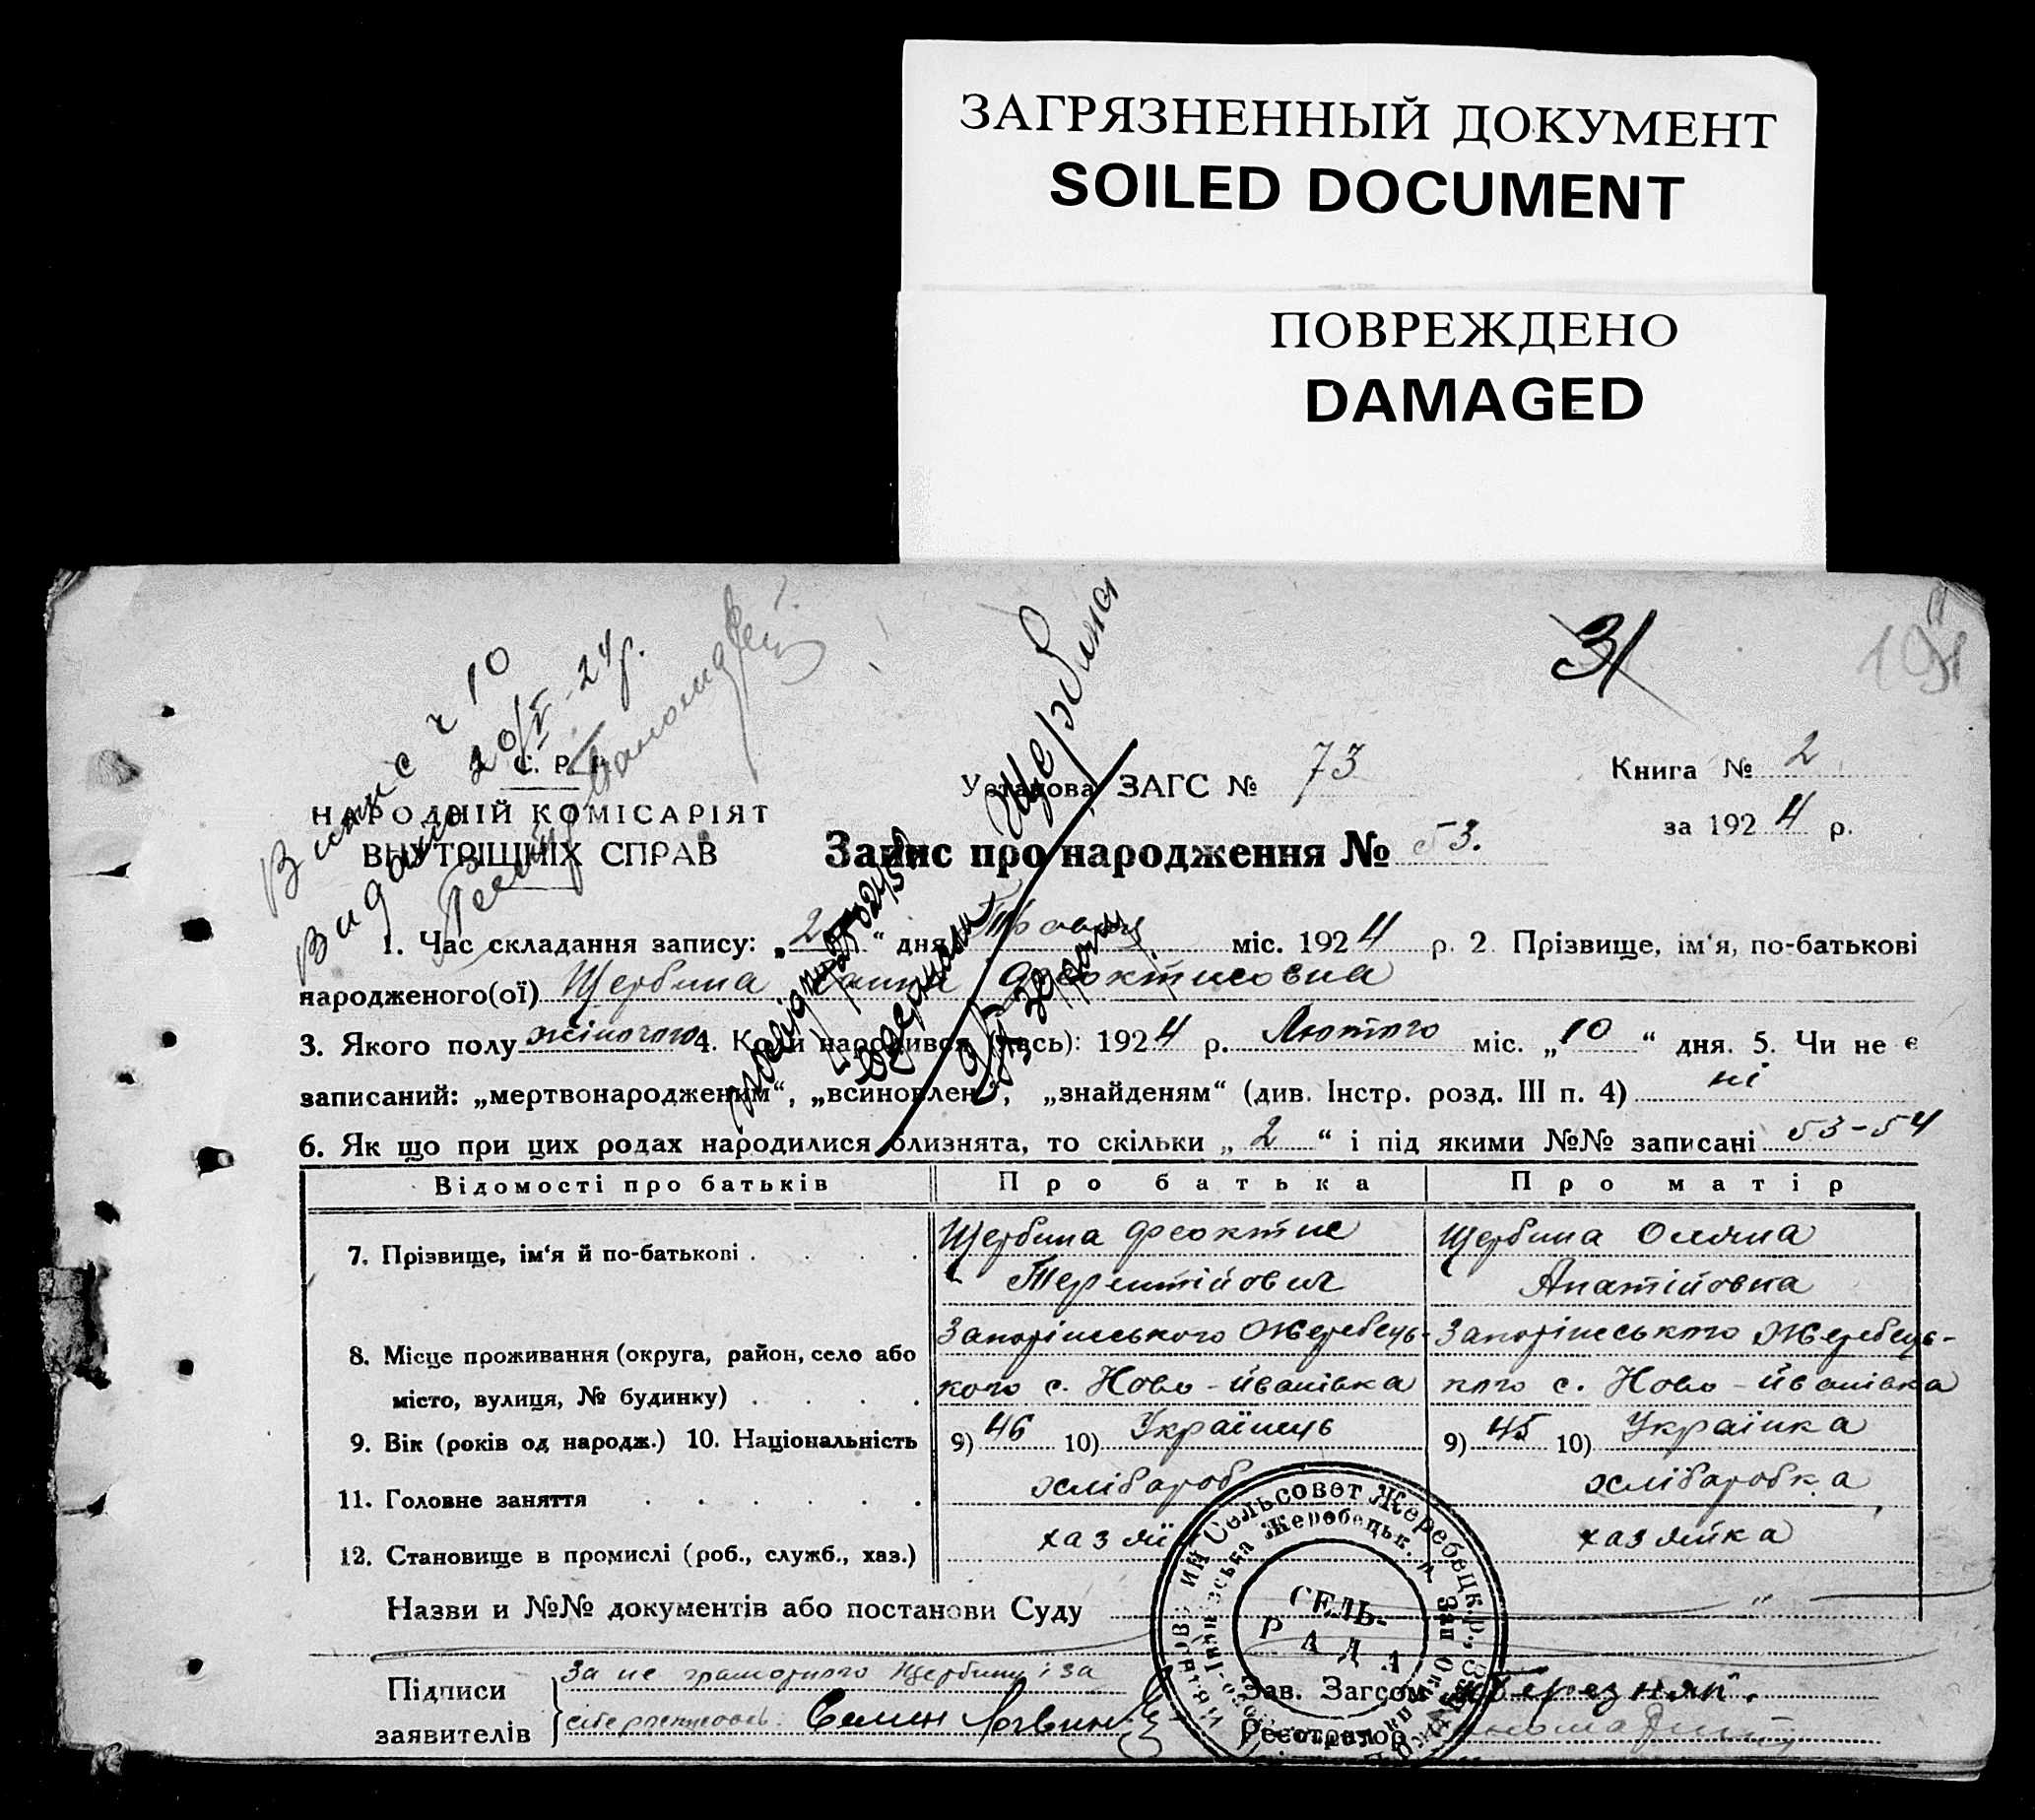 ЗАГРЯЗНЕННЫЙ ДОКУМЕНТ
SOILED DOCUMENT
ПОВРЕЖДЕНО
DAMAGED
31
Щербина
Випис ч 10
Видано 20/V-24 р.
С. Р. Р.
НАРОДНІЙ КОМІСАРІЯТ
ВНУТРІШНІХ СПРАВ
Установа ЗАГС № 73
Книга № 2
за 1924 р.
Запис про народження № 53.
1. Час складання запису: „2“ дня Травня міс. 1924 р. 2 Прізвище, ім‘я, по-батькові
народженого(ої) Щербина Ганна Феоктисовна
3. Якого полу жіночого 4. Коли народився (лась): 1924 р. Лютого міс. „10“ дня. 5. Чи не є
записаний: „мертвонародженим“, „всиновлен“, „знайденям“ (див. Інстр. розд. III п. 4) ні
6. Як що при цих родах народилися близнята, то скільки „2“ і під якими №№ записані 53-54
Відомості про батьків Про батька Про матір
7. Прізвище, ім‘я й по-батькові . . . . Щербина Феоктис Щербина Оляна
Терентійович Анатійовна
8. Місце проживання (округа, район, село або Запоріжського Жеребець- Запоріжського Жеребець-
місто, вулиця, № будинку) . . . . кого с. Ново-Иванівка кого с. Ново-Иванівка
9. Вік (років од народж.) 10. Національність 9) 46 10) Українець 9) 45 10) Українка
11. Головне заняття . . . . . . хлібароб хлібаробка
12. Становище в промислі (роб., служб., хаз.) хазяї хазяйка
Назви и №№ документів або постанови Суду „
Підписи За не грамотного Щербину і за
заявителів Семен
Зав. Загсом Березняк.
Реєстратор
Сельсовет Жеребецк. р.,
Жеребецьк.
СЕЛЬ-
РАДА